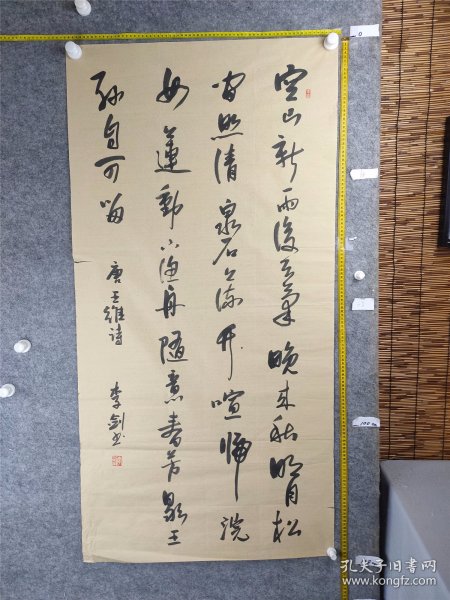 空山新雨後天氣晚来秋明月松
間照清泉石上流竹喧歸浣
女蓮動下漁舟隨意春芳歇王
孫自可留
唐王維詩 李剑书
0
100 cm
孔夫子旧书网
www.kongfz.com